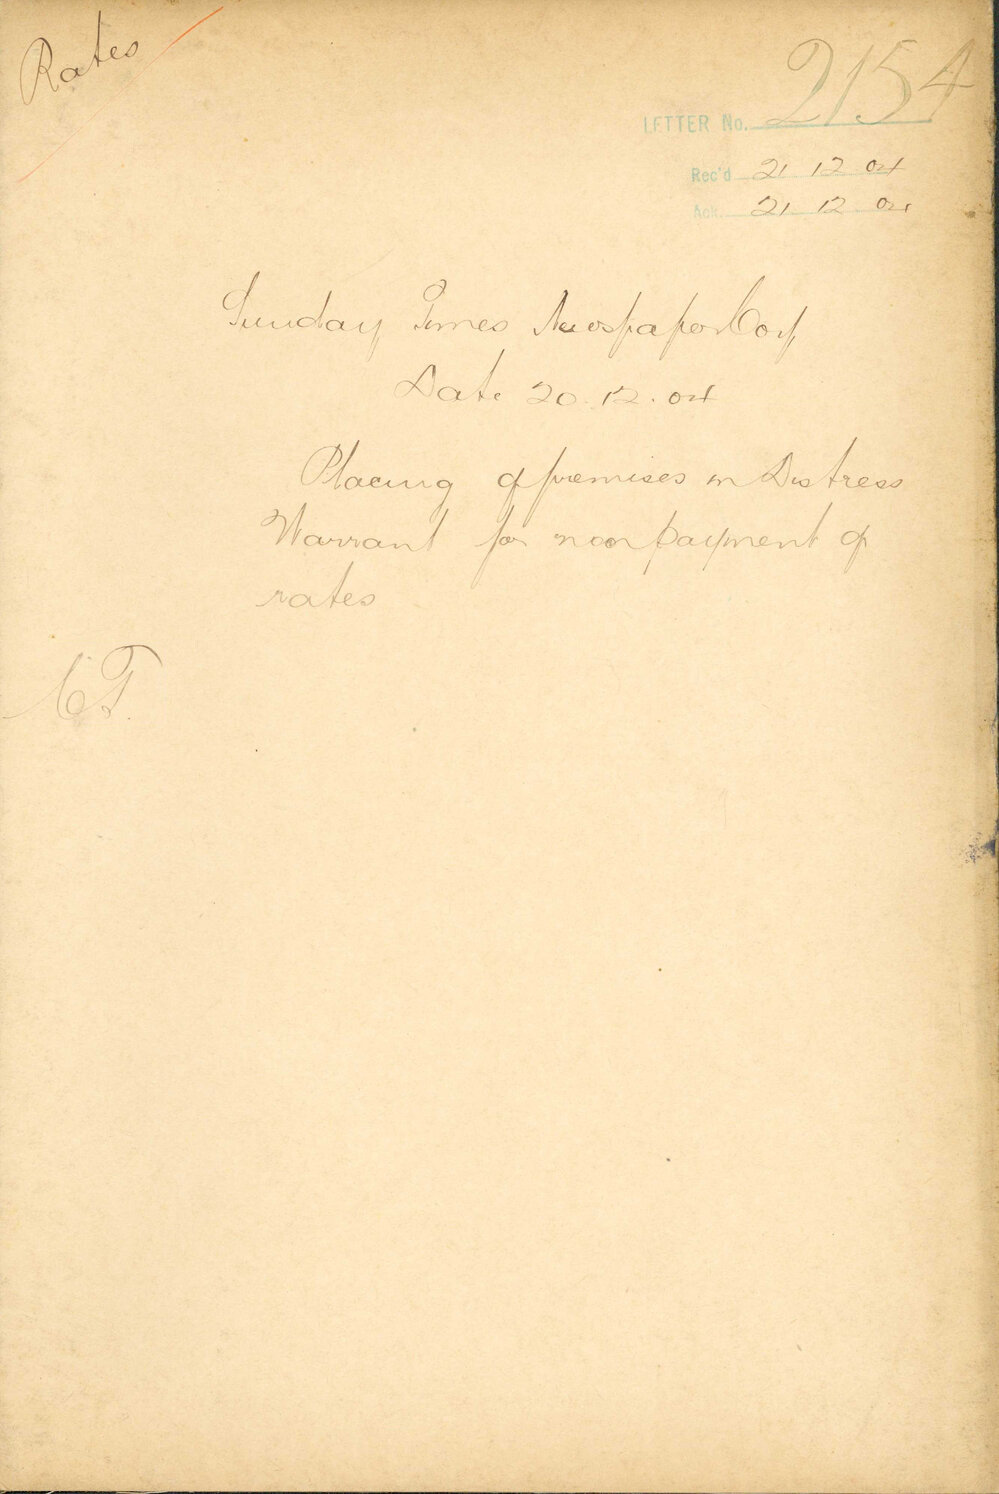 Rates
LETTER No. 2154
Rec'd 21 12 04
Ack. 21 12 04
Sunday Times Newspaper Coy
Date 20.12.04
Placing of premises in Distress
Warrant for non payment of
rates
CT.